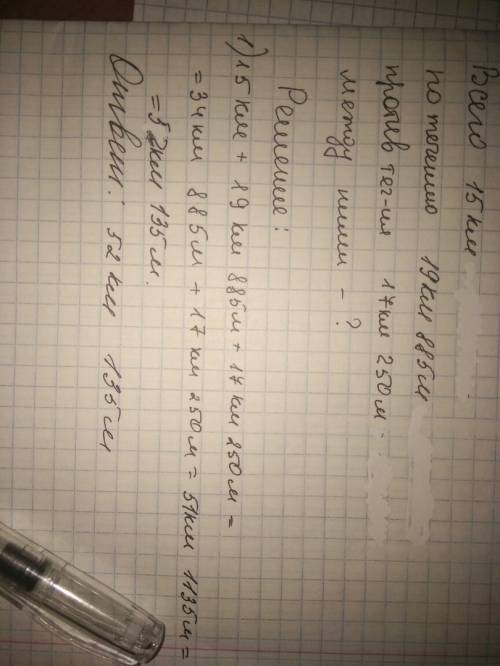 Всего 15 км
по течению 19 км 885 м
против теч-ия 17 км 250 м
между ними - ?
Решение:
1) 15 км + 19 км 885 м + 17 км 250 м =
= 34 км 885 м + 17 км 250 м = 51 км 1135 м =
= 52 км 135 м.
Ответ: 52 км 135 м